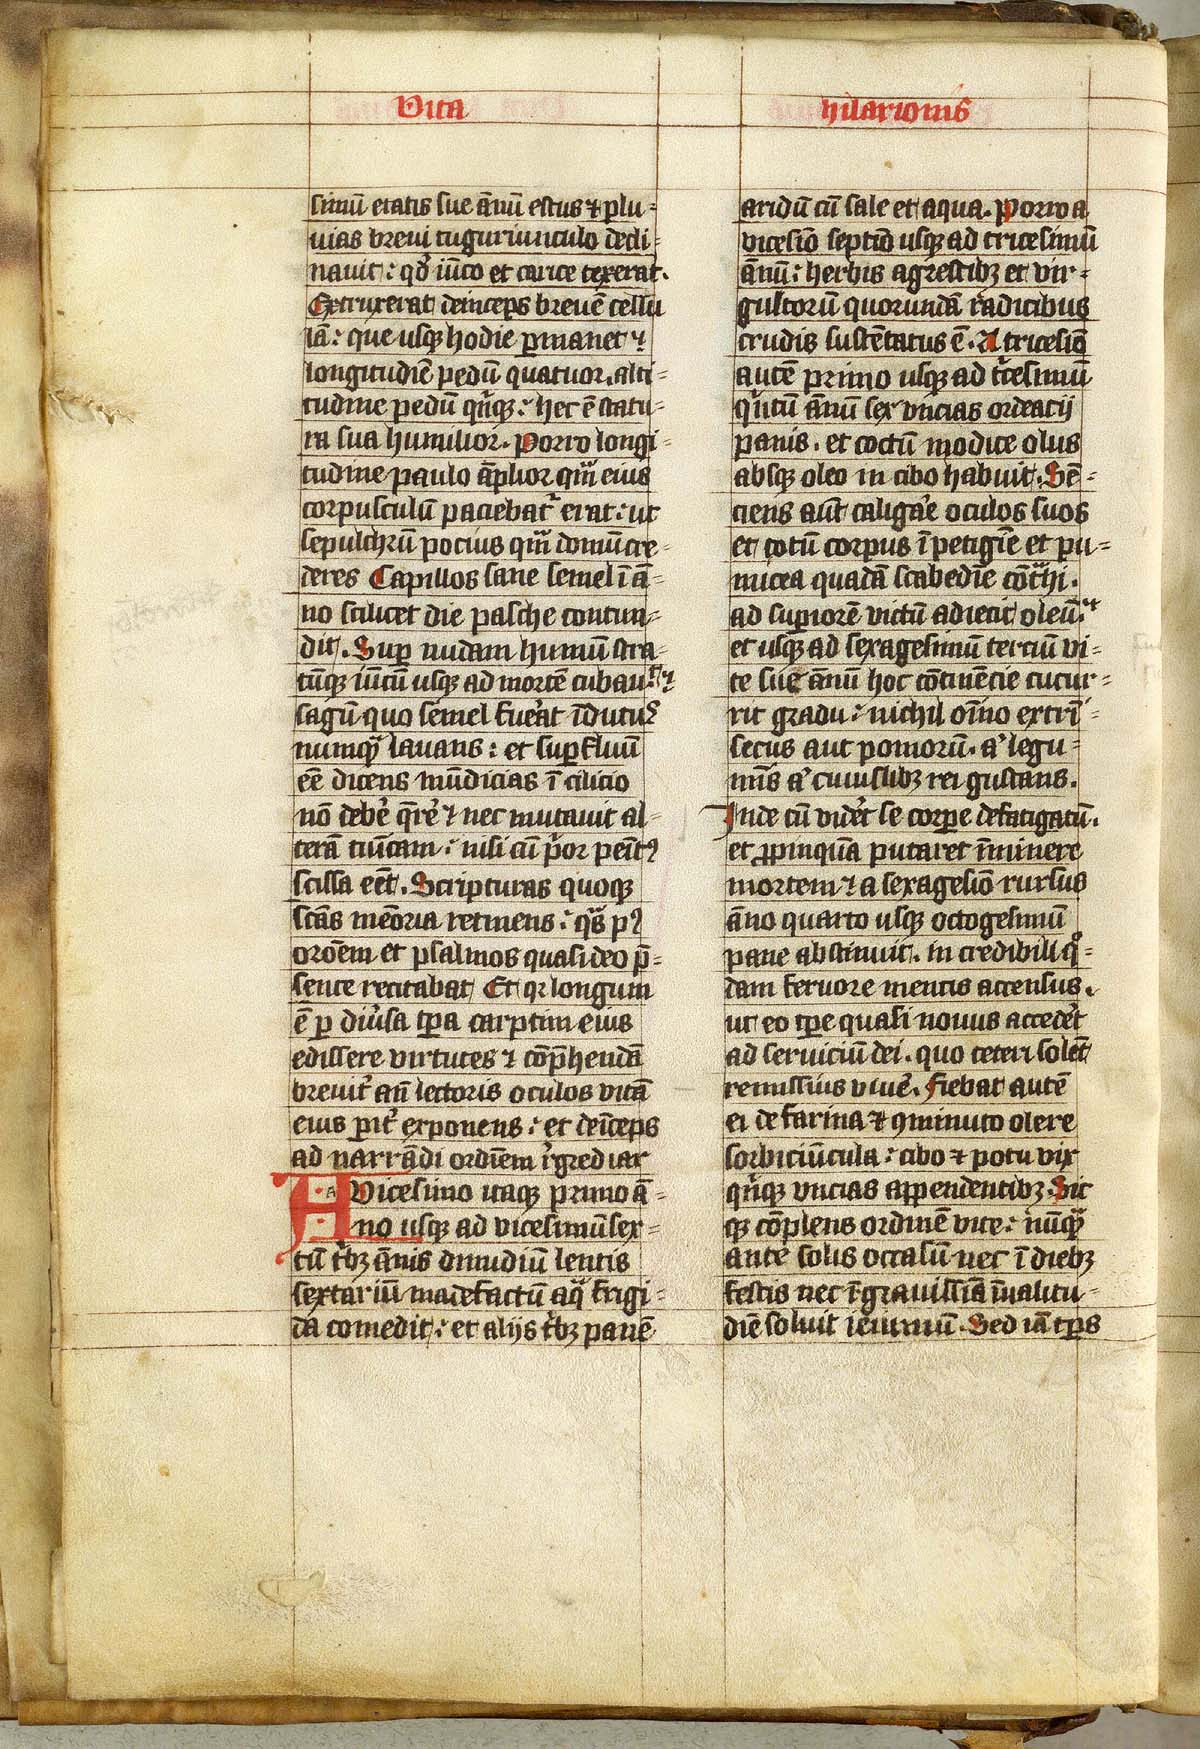 Vita hilarionis
simū etatis sue ānū estus ⁊ plu-
uias breui tuguriunculo decli-
nauit: qḋ iūco et carice texerat.
Extruxerat deinceps breuē cellu
lā: que usqꝫ hodie ꝑmanet ⁊
longitudīe pedū quatuor. alti-
tudine pedū qͥnqꝫ: hec ē statu-
ra sua humilior. Porro longi-
tudine paulo āplior qͣm eius
corpusculū paciebat᷑ erat: ut
sepulchrū pocius qͣm domū cre-
deres Capillos sane semel ī ā-
no scilicet die pasche contun-
dit. Suꝑ nudam humū stra-
tūqꝫ iūcū usqꝫ ad mortē cubauit ⁊
sagū quo semel fuerat īdutus
numqͣ lauans: et suꝑfluū
eē dicens mūdicias ī cilicio
nō debe᷑ qͣre᷑ ⁊ nec mutauit al-
terā tūicam: nisi cū pͥor penitꝰ
scissa eēt. Scripturas quoqꝫ
scās memoria retinens: qͣs pꝰ
oroēm et psalmos quasi deo p̄-
sente recitabat Et qꝛ longum
ē ꝑ diūsa tꝑa carptim eius
edissere virtutes ⁊ cōp̄hendā
breuit᷑ an̄ lectoris oculos vitā
eius ꝑit᷑ exponens: et deīceps
ad narrādi ordinem r̄grediar
A Vicesimo itaqꝫ primo ā-
no usqꝫ ad vicesimū sex-
tū tͥbꝫ ānis dimidiū lentis
sextariū madefactū aqͣ frigi-
da comedit: et alijs tͥbꝫ panē
aridū cū sale et aqua. Porro a
vicesīo septīo usqꝫ ad tricesimū
ānū: herbis agrestibꝫ et vir-
gultorū quorundā radicibus
crudis sustētatus ē. A tricesīo
autē primo usqꝫ ad tͥcesimū
qͥntū ānū sex vncias ordeacij
panis. et coctū modice olus
absqꝫ oleo in cibo habuit. Sē-
ciens aūt caliga᷑e oculos suos
et totū corpus ī petigīe et pu-
micea quadā scabedīe cōtͣhi.
ad suꝑiorē victū adiecit oleū
et usqꝫ ad sexagesimū terciū vi-
te sue ānū hoc cōtinēcie cucur-
rit gradu: nichil oīno extrī-
secus aut pomorū. aͬ legu-
mīs aͬ cuiuslibꝫ rei gustans.
Inde cū vide᷑t se corꝑe defatigatū.
et ꝓpinquā putaret īminere
mortem ⁊ a sexagesīo rursus
āno quarto usqꝫ octogesimū
pane abstinuit. in credibili qͦ-
dam feruore mentis accensus.
ut eo tꝑe quasi nouus accede᷑t
ad seruiciū dei. quo ceteri solēt
remissius viue᷑. Fiebat autē
ei de farina ⁊ ꝯminuto olere
sorbiciūcula: cibo ⁊ potu vix
qͥnqꝫ vncias appendentibꝫ. Sic
qꝫ cōplens ordinē vite: nūqͣ
ante solis occasū nec ī diebꝫ
festis nec ī grauissīa īualitu-
dīe soluit ieiuniū. Sed iā tꝑs